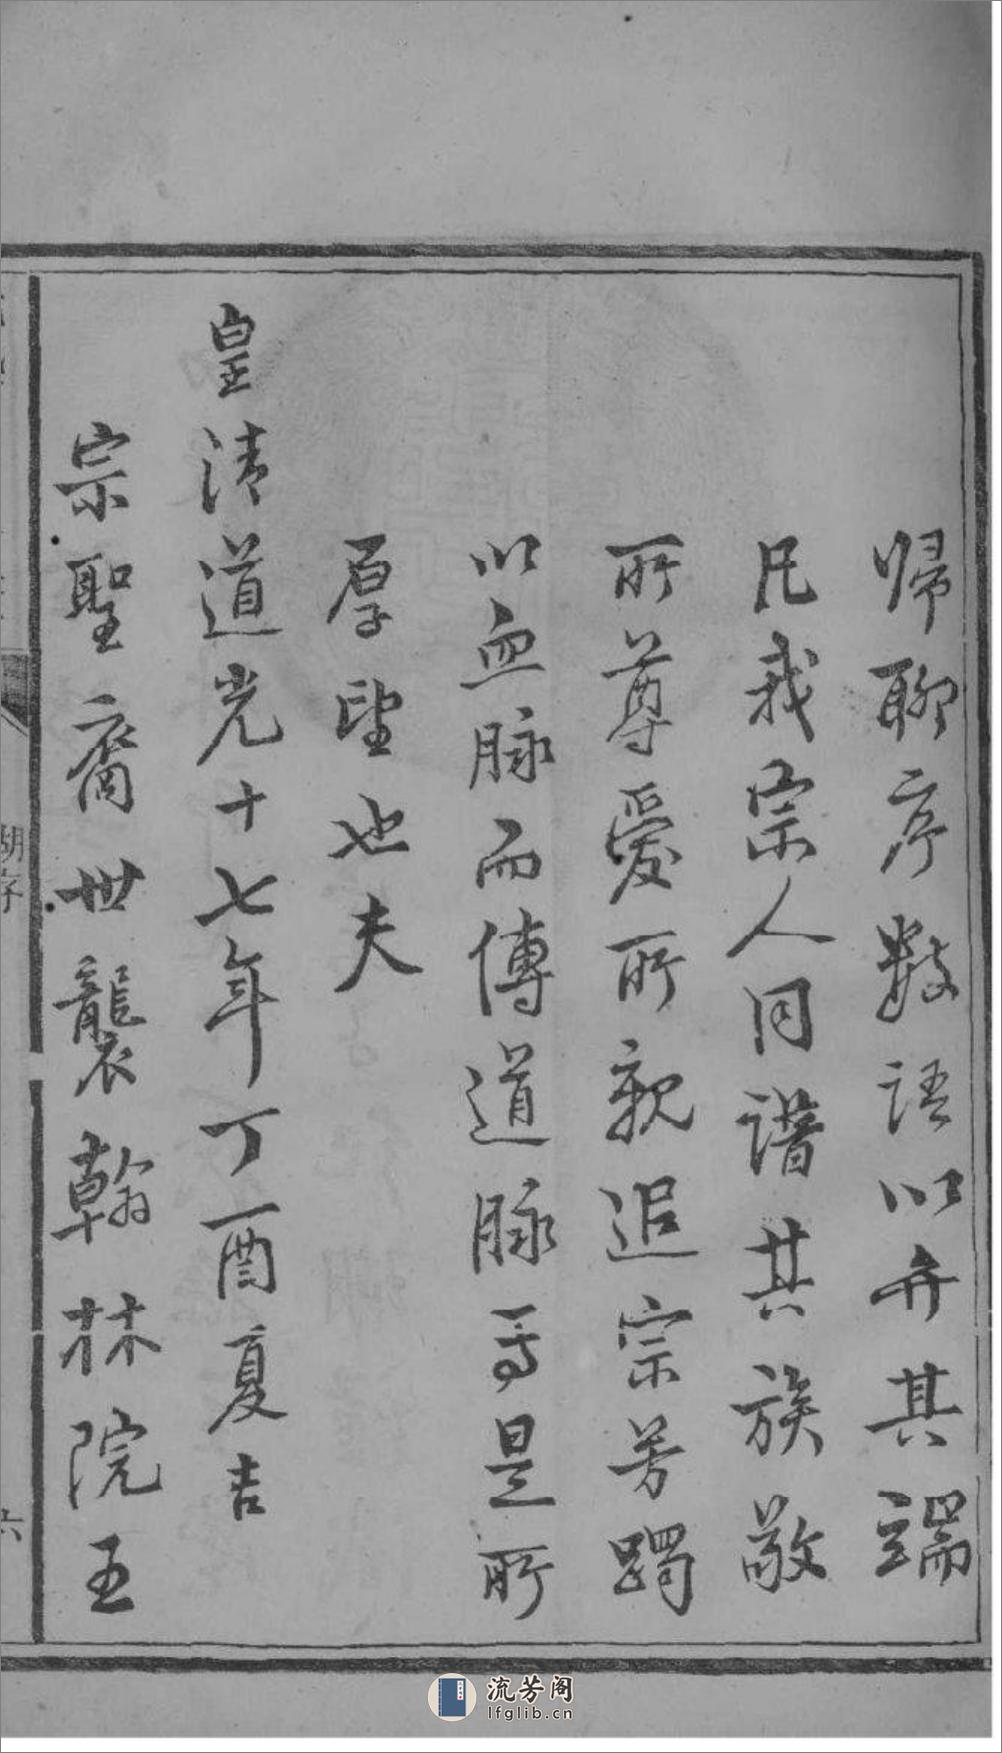 歸聊序數語以弁其端
凡我宗人同譜其族敬
所尊愛所親追宗芳躅
以血脉而傳道脉焉是所
厚望也夫
皇清道光十七年丁酉夏吉
宗聖裔世襲翰林院五
六
流芳阁
lfglib.cn